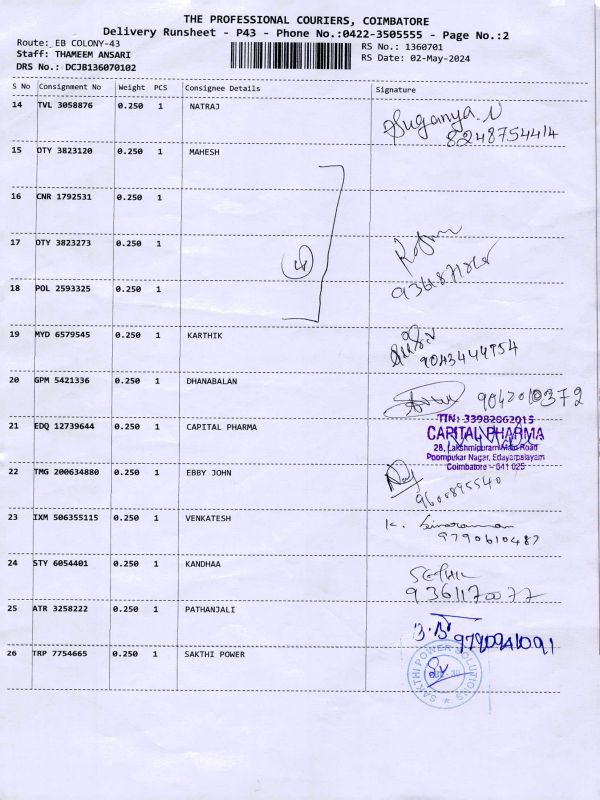 THE PROFESSIONAL COURIERS, COIMBATORE
Delivery Runsheet - P43 - Phone No.:0422-3505555 - Page No.:2
Route: EB COLONY-43
Staff: THAMEEM ANSARI
DRS No.: DCJB136070102
RS No.: 1360701
RS Date: 02-May-2024
S No Consignment No Weight PCS Consignee Details Signature
14 TVL 3058876 0.250 1 NATRAJ
Suganya.N
8248754414
15 OTY 3823120 0.250 1 MAHESH
16 CNR 1792531 0.250 1
17 OTY 3823273 0.250 1
18 POL 2593325 0.250 1
19 MYD 6579545 0.250 1 KARTHIK
9043444954
20 GPM 5421336 0.250 1 DHANABALAN
9042010372
21 EDQ 12739644 0.250 1 CAPITAL PHARMA
TIN: 33982862015
CAPITAL PHARMA
28, Lakshmipuram Main Road
Poompukar Nagar, Edayarpalayam
Coimbatore - 641 025
22 TMG 200634880 0.250 1 EBBY JOHN
9600895540
23 IXM 506355115 0.250 1 VENKATESH
K.
9790610487
24 STY 6054401 0.250 1 KANDHAA
9361170077
25 ATR 3258222 0.250 1 PATHANJALI
9790941091
26 TRP 7754665 0.250 1 SAKTHI POWER
SAKTHI POWER SOLUTIONS